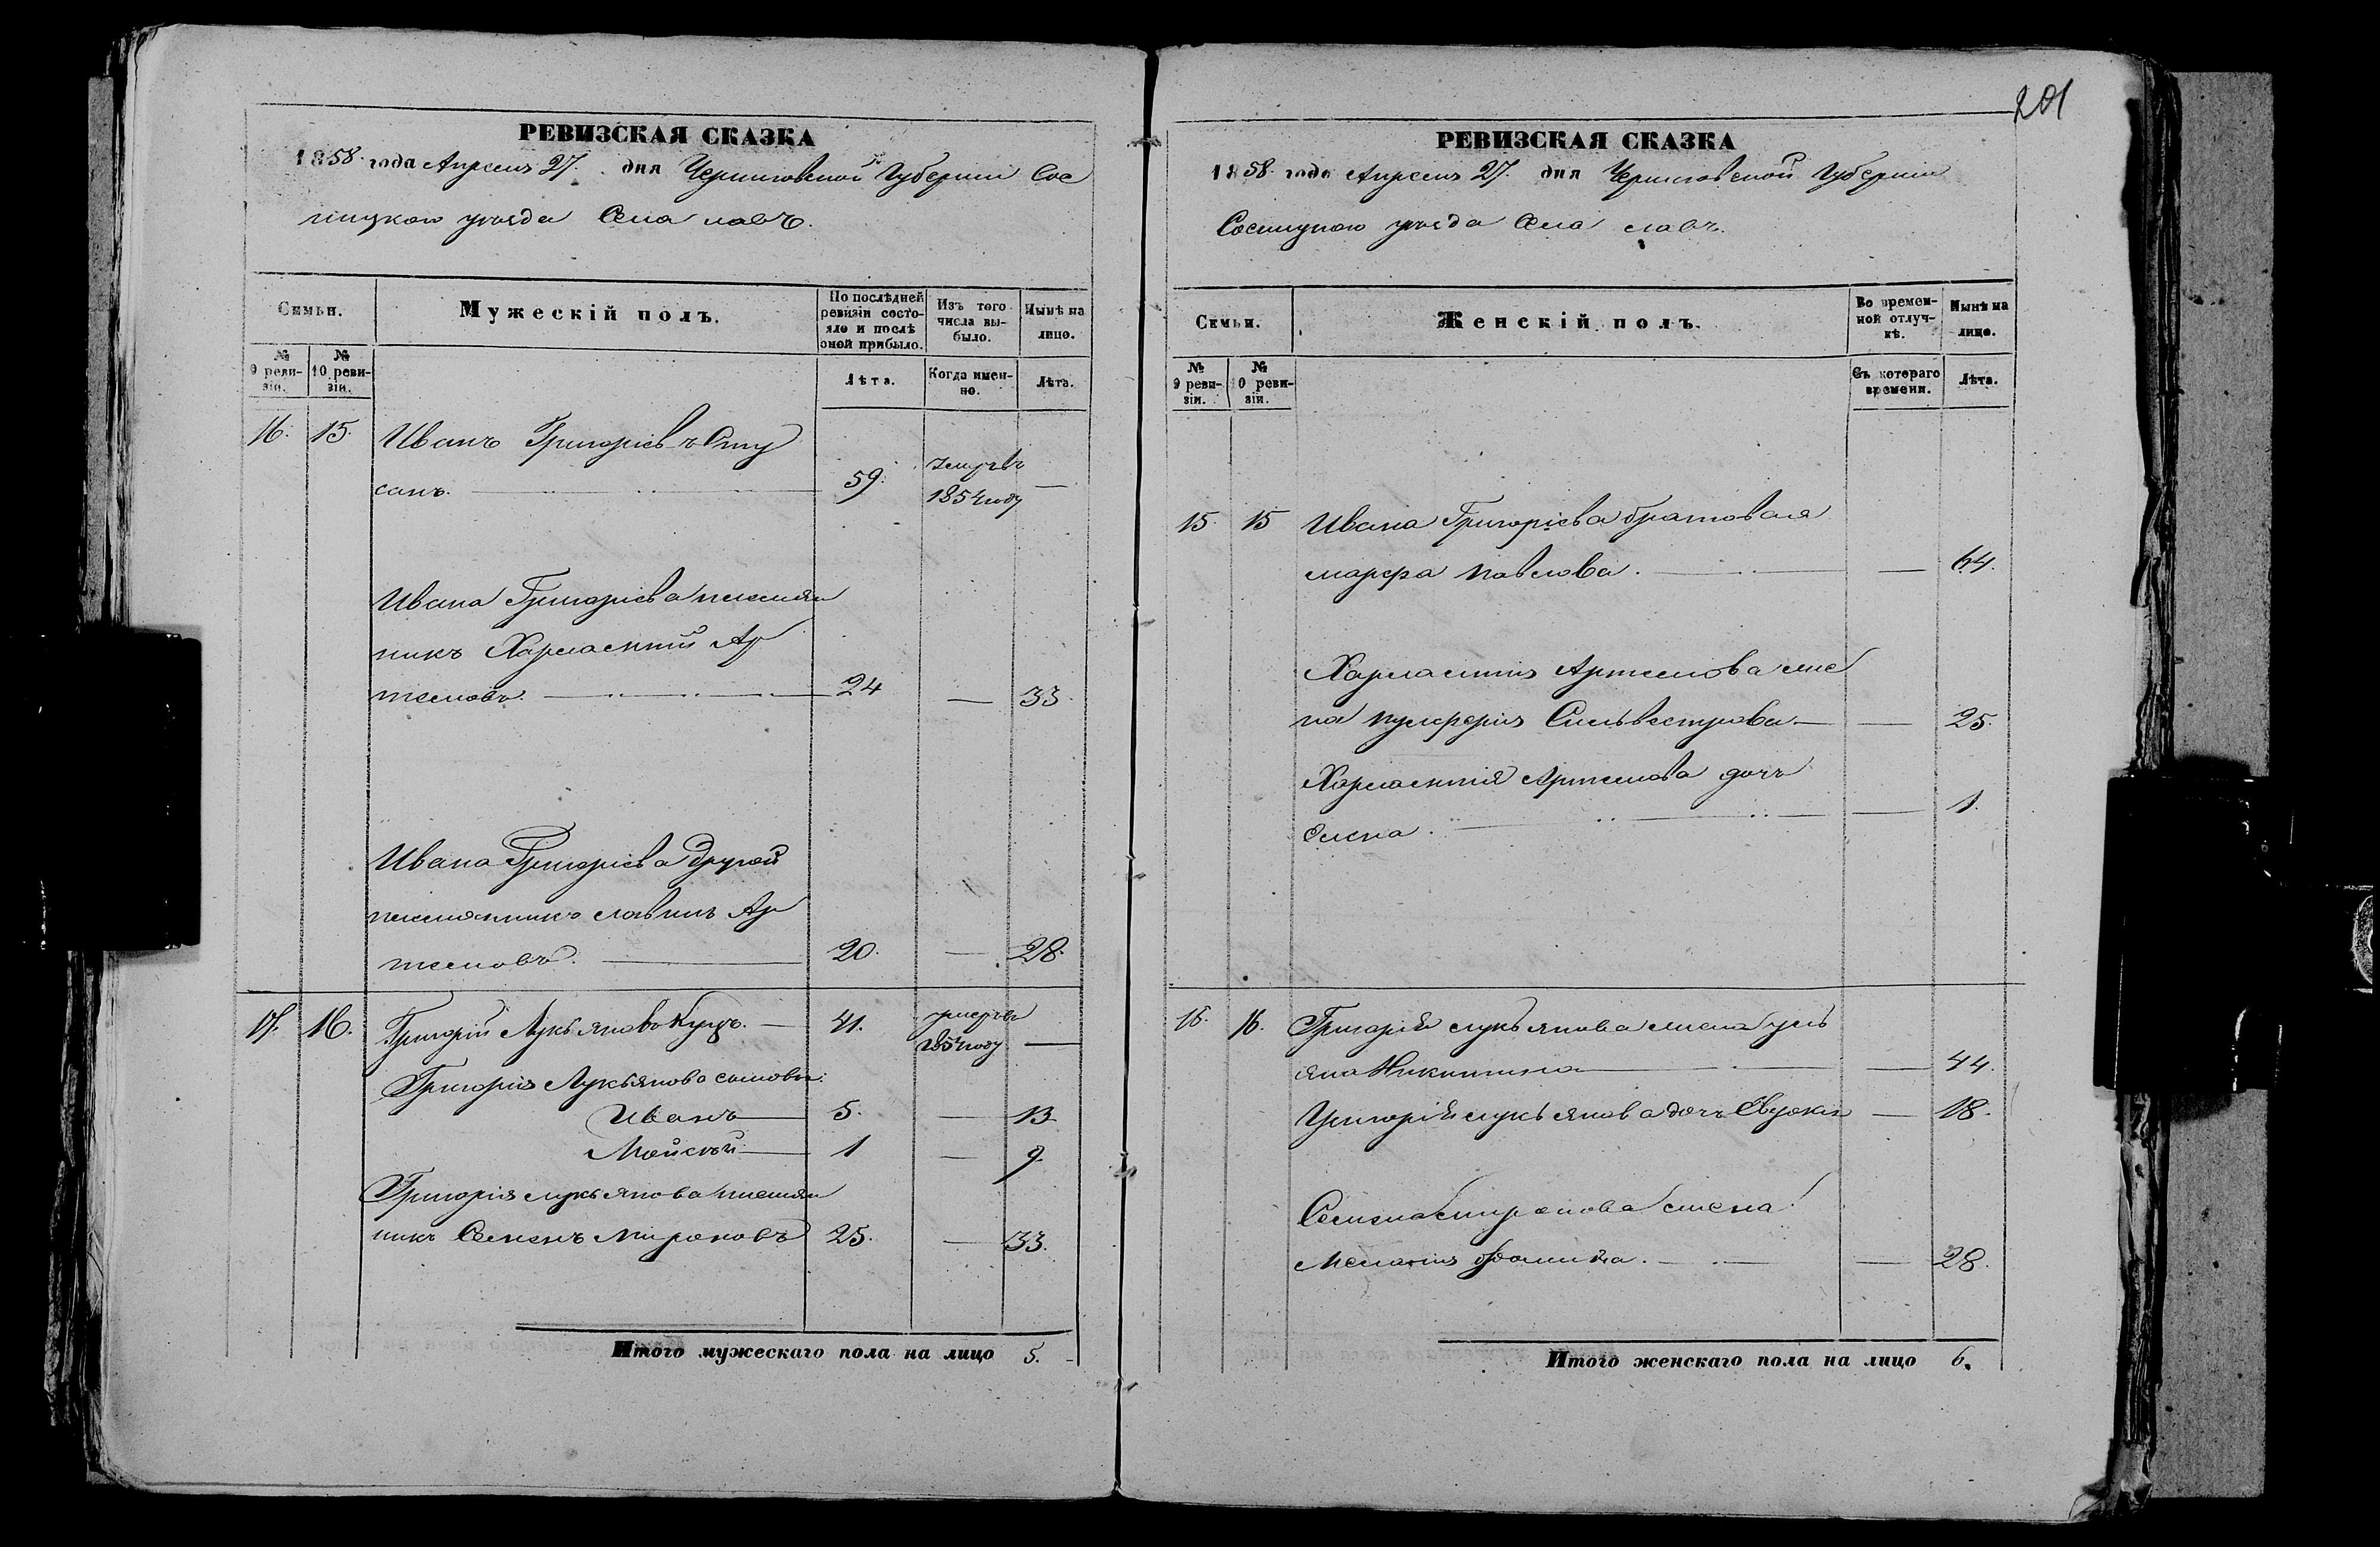 201
РЕВИЗСКАЯ СКАЗКА
1858 года Апреля 27. дня Черниговской Губернии Сос
ницкого уезда Села
Семьи.
Мужескій полъ.
По послѣдней ревизіи состояло и послѣ оной прибыло.
Изъ того числа выбыло.
Нынѣ на лицо.
№ 9 ревизіи.
№ 10 ревизіи.
Лѣта.
Когда именно.
Лѣта.
16. 15. Иванъ Григоріевъ
санъ. 59. умеръ 1854 году —
Ивана Григоріева племян
никъ Харлампій Ар
темовъ. 24 — 33.
Ивана Григоріева другой
племянникъ Савинъ Ар
темовъ. 20. — 28.
17. 16. Григорій Лукьяновъ Куцъ. — 41. умеръ 1854 году —
Григорія Лукьянова сыновья:
Иванъ — 5. — 13
Мойсей — 1 — 9.
Григорія Лукьянова племян
никъ Семенъ Мироновъ 25. — 33.
Итого мужескаго пола на лицо 5.
РЕВИЗСКАЯ СКАЗКА
1858 года Апреля 27. дня Черниговской Губерніи
Сосницкого уезда Села
Семьи.
Женскій полъ.
Во временной отлучкѣ.
Нынѣ на лицо.
№ 9 ревизіи.
№ 10 ревизіи.
Съ котораго времени.
Лѣта.
15. 15 Ивана Григоріева братовая
Марфа Павлова. — 64.
Харлампія Артемова же
на Пульхерія Сильвестрова — — 25.
Харлампія Артемова дочь
Елена. — 1.
16. 16. Григорія Лукьянова жена Уль
яна Никитина — — 44.
Григорія Лукьянова дочь Евдокія — 18.
Семена Миронова жена
Меланія Фомина. — — 28.
Итого женскаго пола на лицо 6.